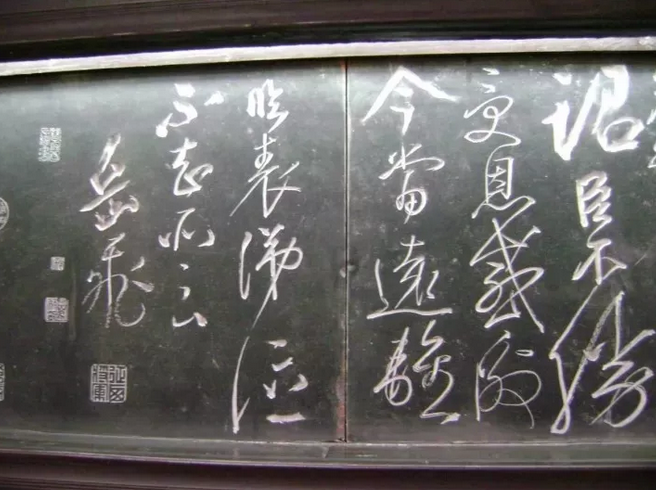 詔臣不勝
受恩感激
今當遠離
臨表涕泣
不知所云
岳飛